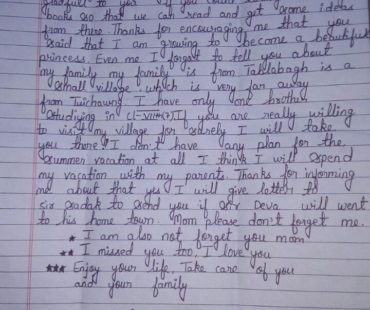 grateful to you. If you
books so that we can read and get some ideas
from there. Thanks for encouraging me that you
said that I am growing to become a beautiful
princess. Even me I forgot to tell you about
my family my family is from Taklabagh is a
small village which is very far away
from Tuichawng I have only one brother
studiying in Cl-VIII If you are really willing
to visit my village for surely I will take
you there! I don't have any plan for the
summer vacation at all I think I will spend
my vacation with my parents. Thanks for informing
me about that yes I will give latter to
sir sadak to send you if sir Deva will went
to his home town. Mom please don't forget me.
★ I am also not forget you mom
★★ I missed you too, I love you
★★★ Enjoy your life, Take care of you
and your family